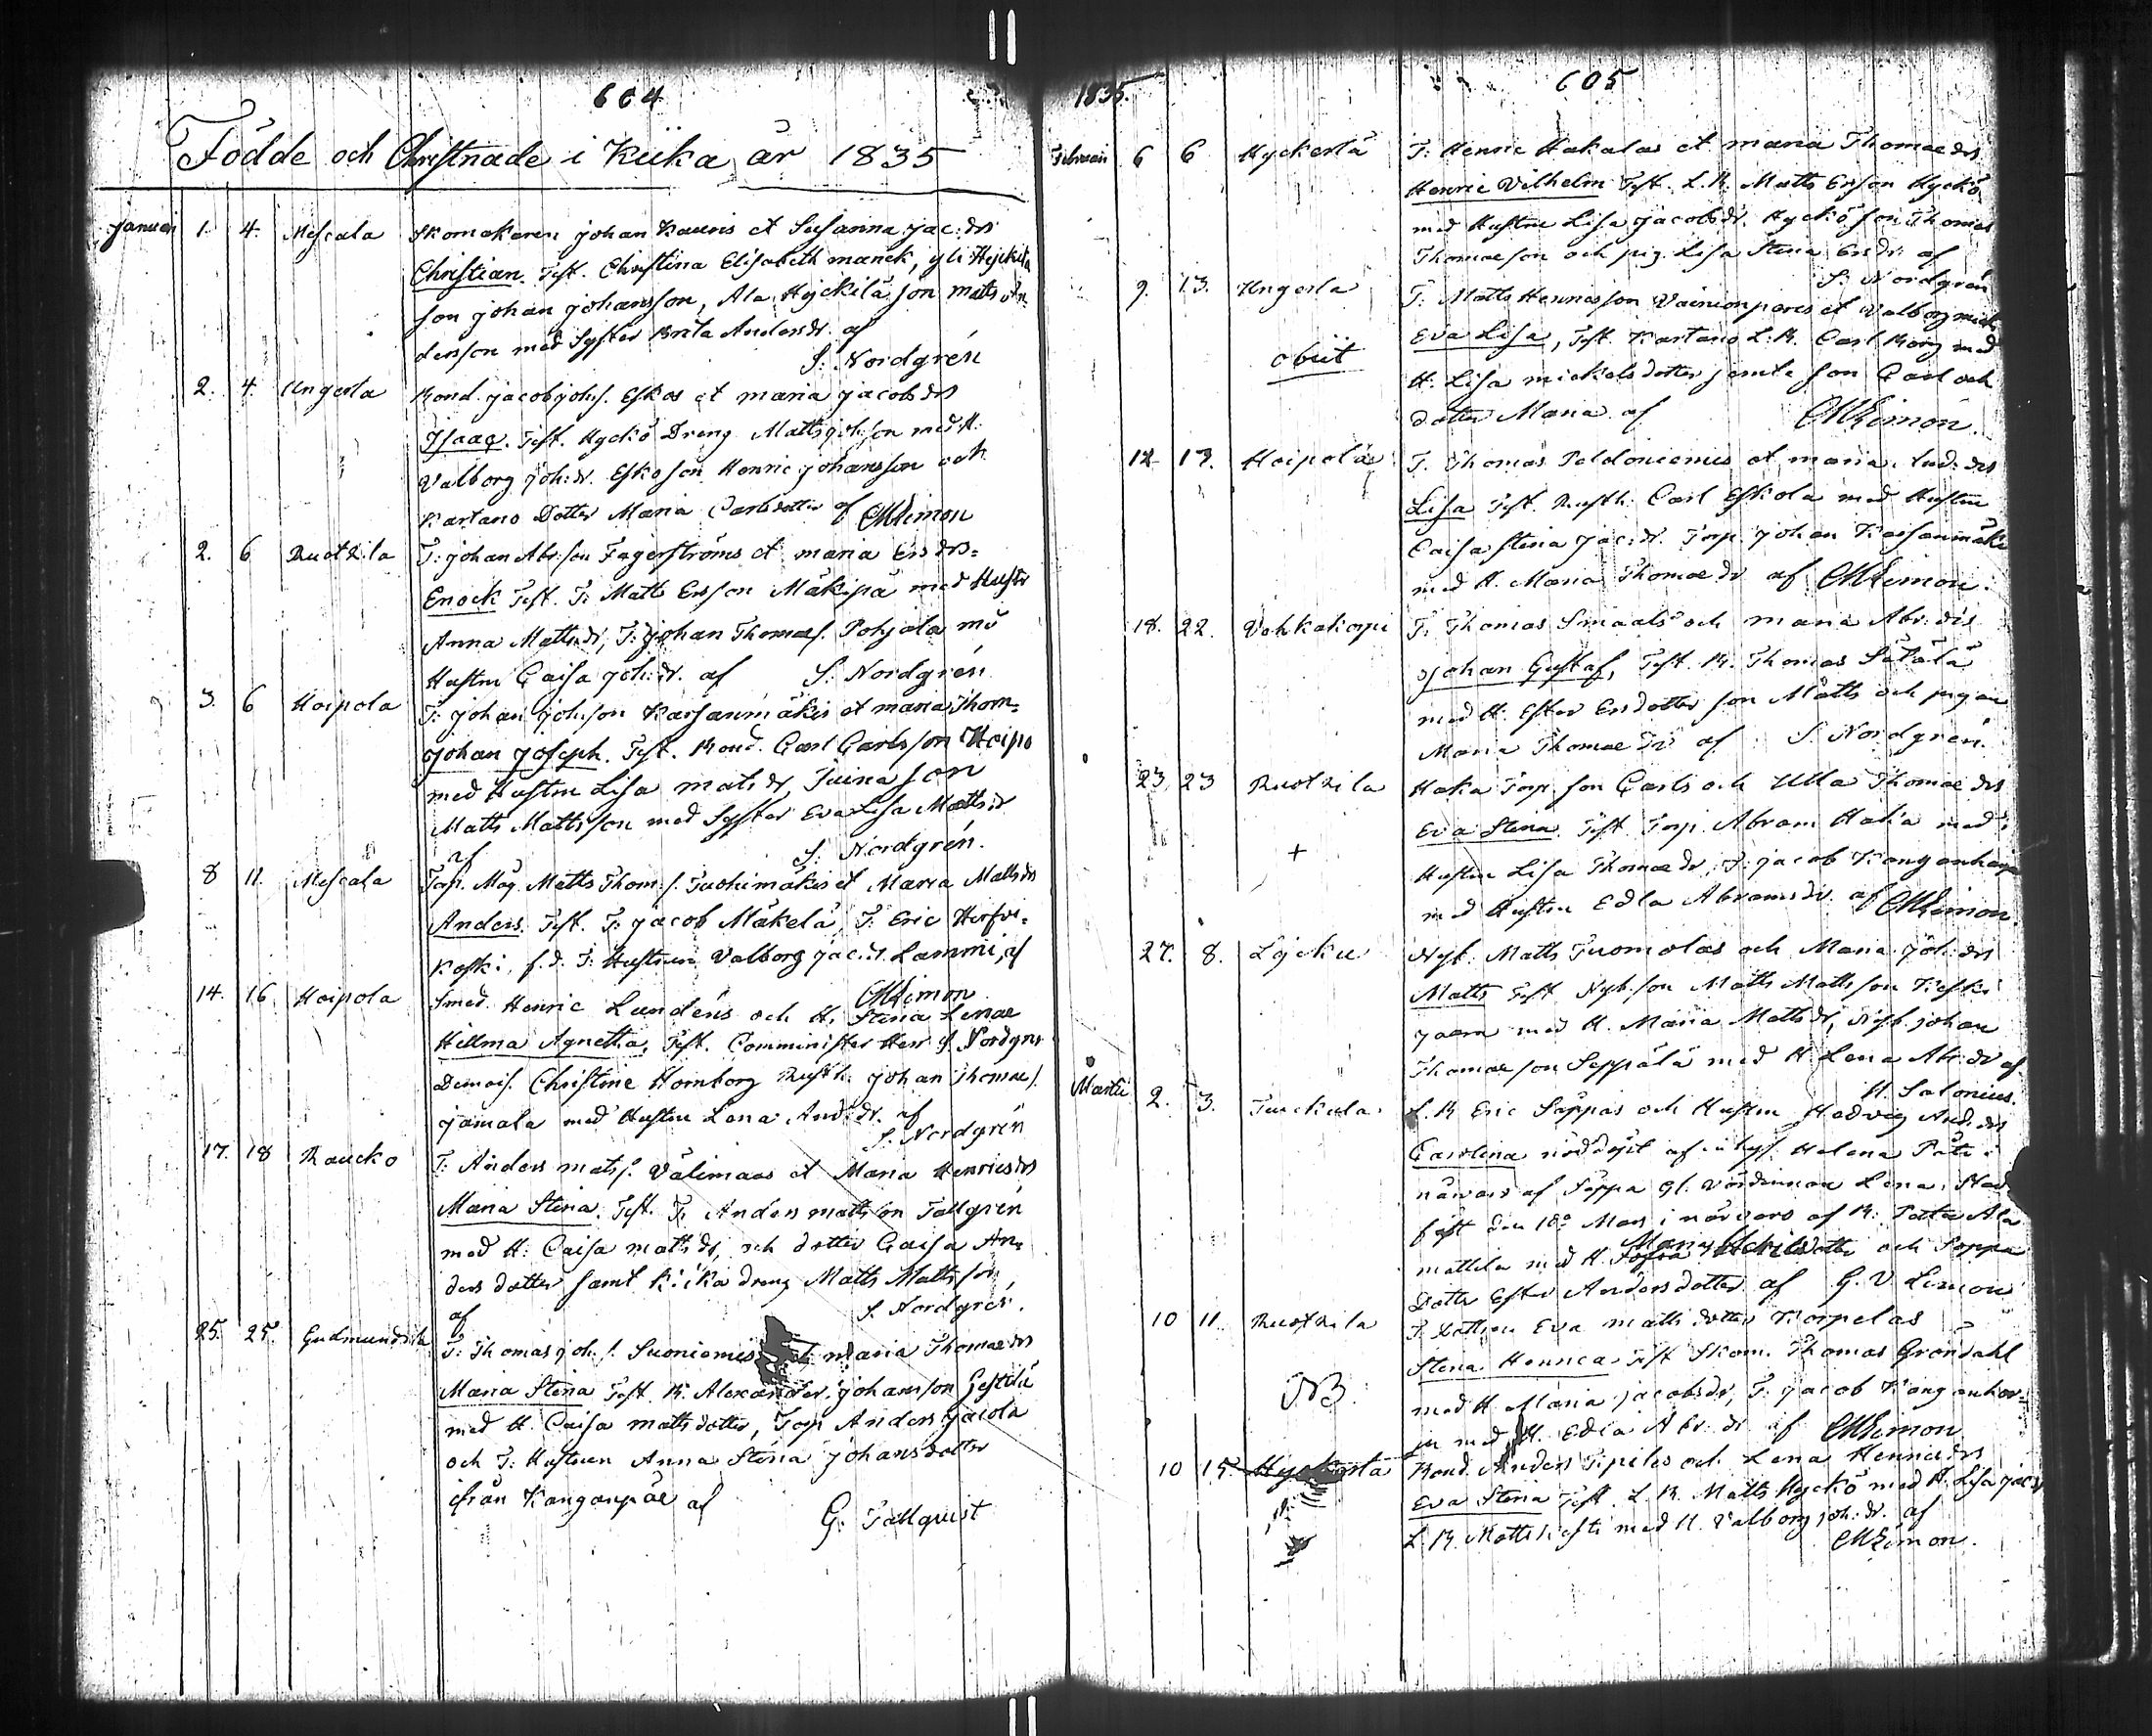 604
Födde och Christnade i Kiika år 1835
Januari 1. 4. Mescala Skomakaren Johan Kauris et Susanna Jac: drs
Christian. Test. Christina Elisabeth Manck, yli Hyckilä
son Johan Johansson, Ala Hyckilä son Mats An-
dersson med Syster Brita Anders dr. af
S. Nordgrén
2. 4. Ungerla Bond. Jacob Johs. Eskos et Maria Jacobs drs
Isaac. Test. Hyckö Dreng Matts Joh:son med H.
Valborg Joh: dr. Esko son Henric Johansson och
Kartano Dotter Maria Carlsdotter af Limon
2. 6 Ruotzila T: Johan Abr:son Fagerströms et Maria Ers drs=
Enock Test. T: Matts Ersson Mäkipä med Hustr
Anna Matts dr, T: Johan Thomæs. Pohjala m
Hustru Caisa Joh: dr. af S. Nordgrén
3. 6 Hoipola T: Johan Joh:son Karsanmäkis et Maria Thom=
Johan Joseph. Test. Bond. Carl Carlsson Hoipo
med Hustru Lisa Mats dr, Tuina son
Matts Mattsson med Syster Eva Lisa Matts dr
af S. Nordgrén.
8 11. Mescala Torp. Måg Matts Thom:s. Tuohimäkis et Maria Matts drs
Anders. Test. T: Jacob Mäkelä, T: Eric Herfvi-
koski, f.d. T: Hustrun Valborg Jac: dr. Lammi, af
Limon
14. 16. Hoipola Smed. Henric Lundéns och H. Stina Lenæ
Hilma Agnetha, Test. Comminister Herr S. Nordgrn
Demois. Christine Hornborg Rusth: Johan Thomæs.
Jamala med Hustru Lena And: dr. af
S. Nordgrén
17. 18 Raucko T: Anders Mats s. Välimaas et Maria Henrics drs
Maria Stina. Test. T: Anders Mattsson Tallgrén
med H: Caisa Matts dr, och dotter Caisa An-
ders dotter samt Kiika dreng Matts Mattsson,
af S. Nordgrén.
25. 25. Gudmundzila T: Thomas Joh:s. Suoniemis et Maria Thomæ drs
Maria Stina Test. B. Alexander Johansson Gestilä
med H. Caisa Matts dotter, Torp Anders Jacola
och T: Hustrun Anna Stina Johansdotter
ifrån Kanganpää af G. Tallquist
1835. 605
Februari 6 6 Hyckerlä T: Henric Hakalas et Maria Thomæ drs
Henric Vilhelm Test. L. B. Matts Ersson Hyckö
med Hustru Lisa Jacobs dr. Hyckö son Thomas
Thomæson och pig. Lisa Stina Ers dr: af
S. Nordgrén
9. 13. Ungerla T. Matts Hennesson Vainionperes et Valborg Mick
Eva Lisa, Test. Kartano L. B. Carl Borg med
obiit H. Lisa Mickels dotter jemte son Carl och
dotter Maria af Limon.
12 13. Hoipola T. Thomas Peldoniemis et Maria Lud: drs
Lisa Test. Rusth. Carl Eskola med Hustru
Caisa Stina Jac: dr. Torp Johan Karsanmäki
med H. Maria Thomæ dr af Limon.
18. 22. Vohkakopi T. Thomas Smaals och Maria Abr: drs
Johan Gustaf, Test. B. Thomas Sätälä
med H. Ester Ersdotter son Matts och pigan
Maria Thomæ dr af S. Nordgrén.
23. 23 Ruotzila Haka Torp. son Carls och Ulla Thomæ drs
Eva Stina. Test. Torp. Abram Haka med
+ Hustru Lisa Thomæ dr, T: Jacob Kanganharju
med Hustru Edla Abrams dr. af Limon.
27. 8. Lycku Nyb. Matts Tuomolas och Maria Joh: drs
Matts Test. Nyb. son Matts Mattsson Keski
jaara med H. Maria Matts dr, Nyb. Johan
Thomæson Seppälä med H. Lena Abr: dr af
H. Salonius.
Martii 2. 3. Turckula. L. B Eric Soppas och Hustru Hedvig And: drs
Carolina nöddöpt af inhys. Helena Päts i
närvaro af Soppa gl. värdinnan Lena. Stad-
fäst den 18de Mars i närvaro af B. Potta Ala
mattila med H. Maria Mickelsdotter och Soppa
Dotter Ester Andersdotter af G. V. Limon
10 11. Ruotzila T. Dottren Eva Matts dotter Korpelas
Stina Henrica Test Skom. Thomas Gröndahl
NB. med H. Maria Jacobs dr, T: Jacob Kanganhar-
ju med H. Edla Abr: dr af Limon
10 15. Hyckerlä Bond. Anders Tipilis och Lena Henrics drs
Eva Stina Test. L. B. Matts Hyckö med H. Lisa Jacs
L. B. Matts med H. Valborg Joh: dr. af
Limon.